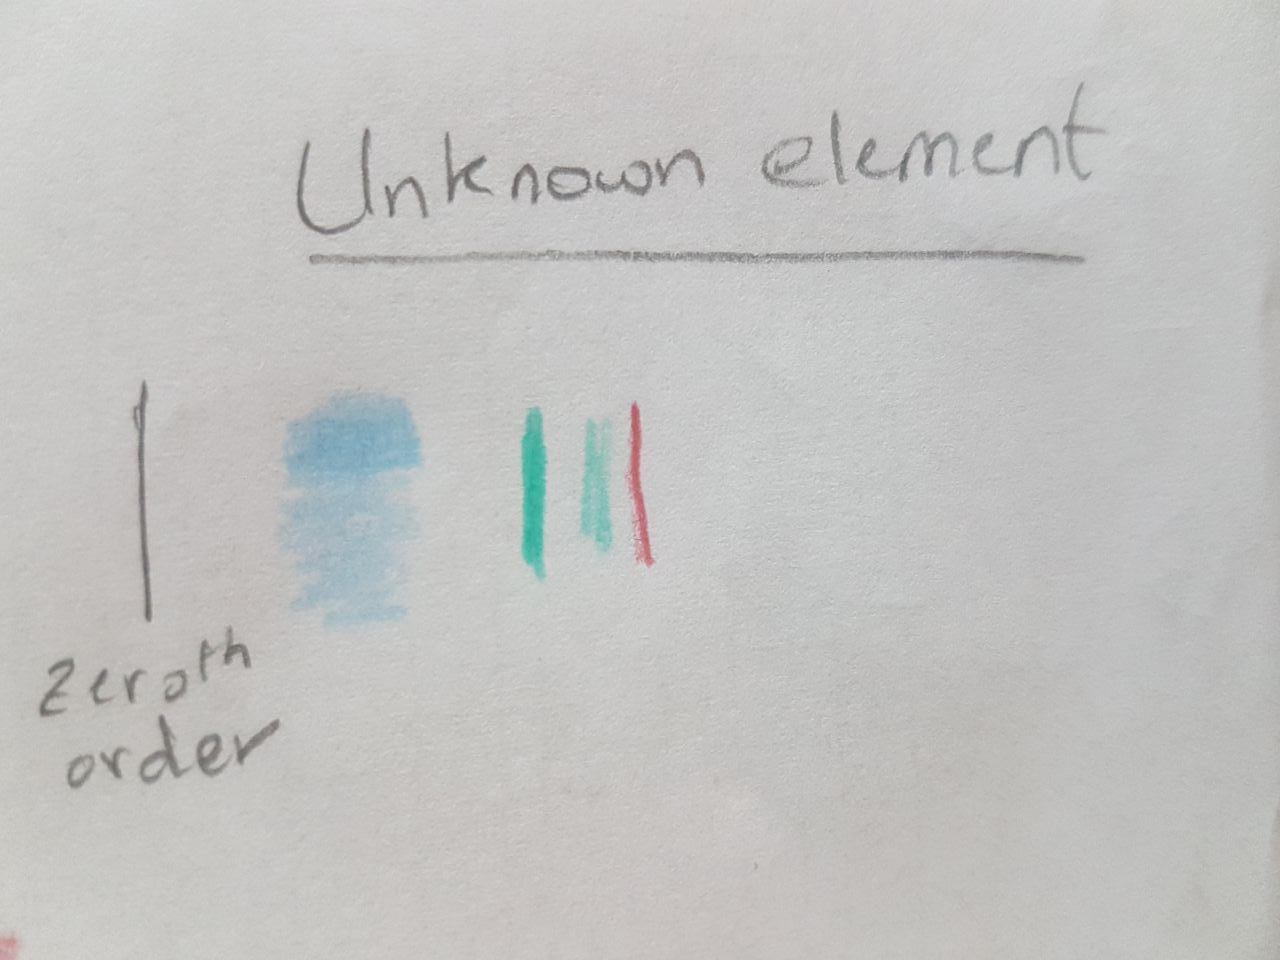 Unknown element
Zeroth
order